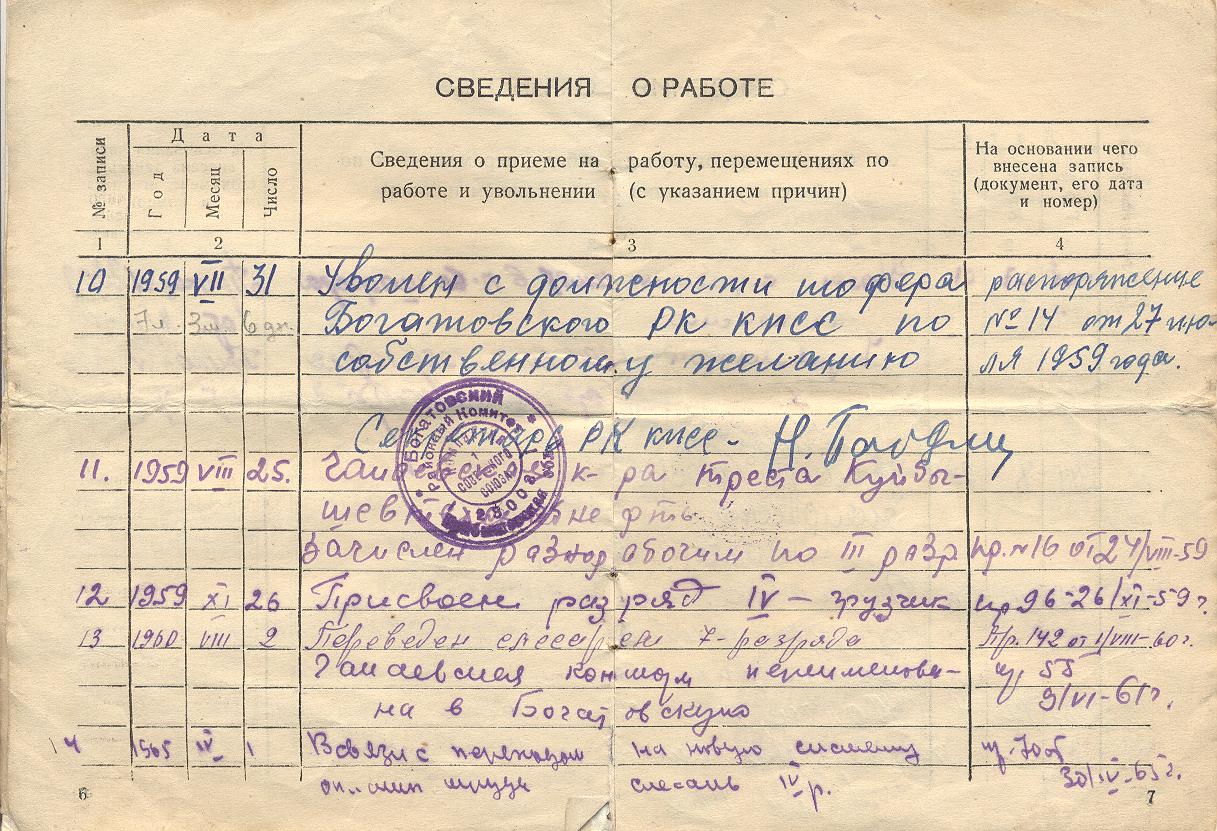 СВЕДЕНИЯ О РАБОТЕ
№ записи
Дата
Год
Месяц
Число
Сведения о приеме на работу, перемещениях по
работе и увольнении (с указанием причин)
На основании чего
внесена запись
(документ, его дата
и номер)
1 2 3 4
10 1959 VII 31 Уволен с должности шофера распоряжение
Богатовского РК КПСС по №14 от 27 ию-
собственному желанию ля 1959 года.
Богатовский
Районный Комитет
Советского
Союза
РК КПСС-
11. 1959 VIII 25. к-ра треста Куйбы-
шев
зачислен разнорабочим по III разр пр. №16 от 24/VIII-59
12 1959 XI 26 Присвоен разряд IV – грузчик пр 96-26/XI-59г.
13 1960 VIII 2 Переведен слесарем 7-разряда Пр. 142 от 1/VIII-60г.
Чапаевская контора переименова-
на в Богатовскую 9/VI-61г.
14 1965 IV 1 В связи с переходом на новую систему
оплаты труда слесарь IV р. 30/IV-65г.
6
7